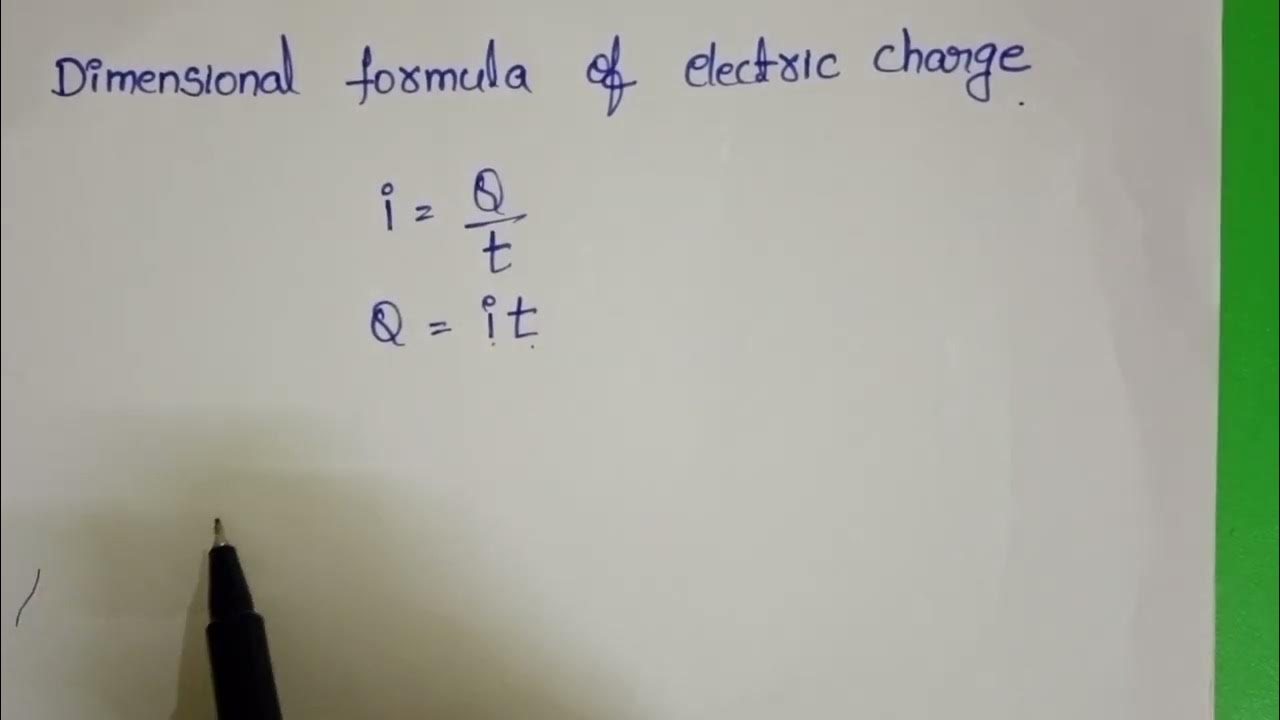 Dimensional formula of electric charge.
i = Q/t
Q = it